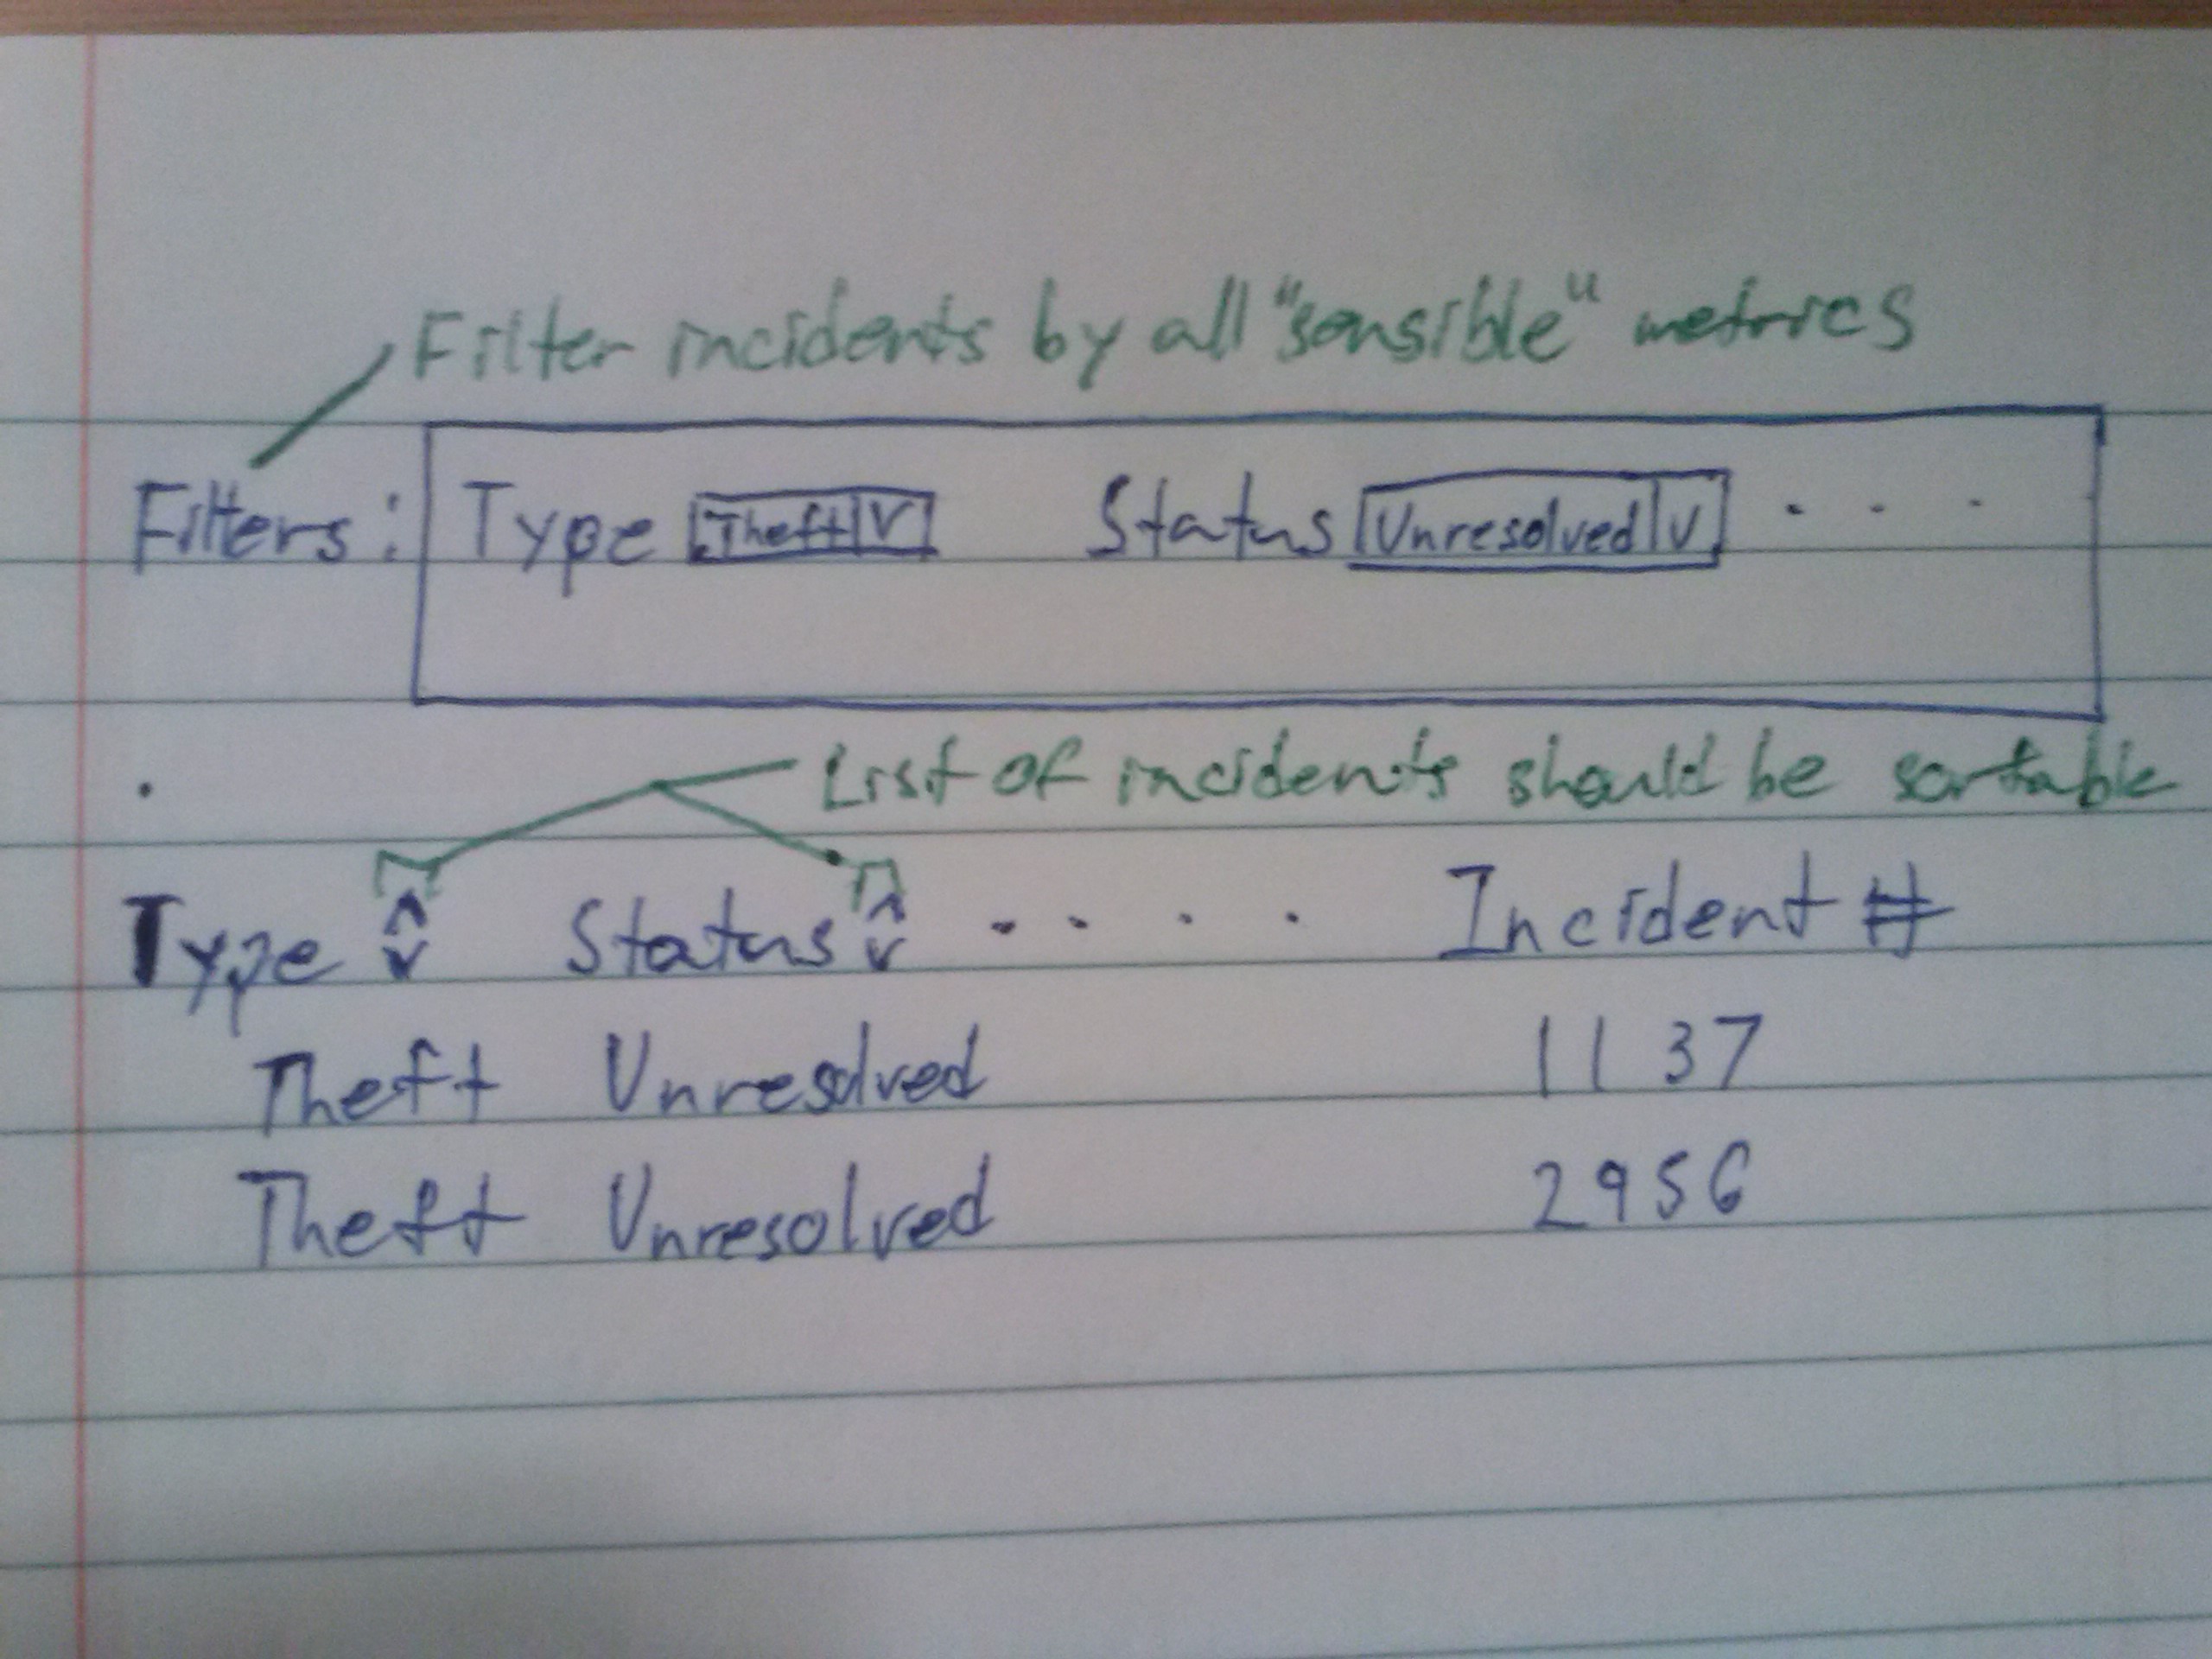 Filter incidents by all "sensible" metrics
Filters: Type Theft V Status Unresolved V . . .
List of incidents should be sortable
Type ^ v Status ^ v . . . . Incident #
Theft Unresolved 1137
Theft Unresolved 2956